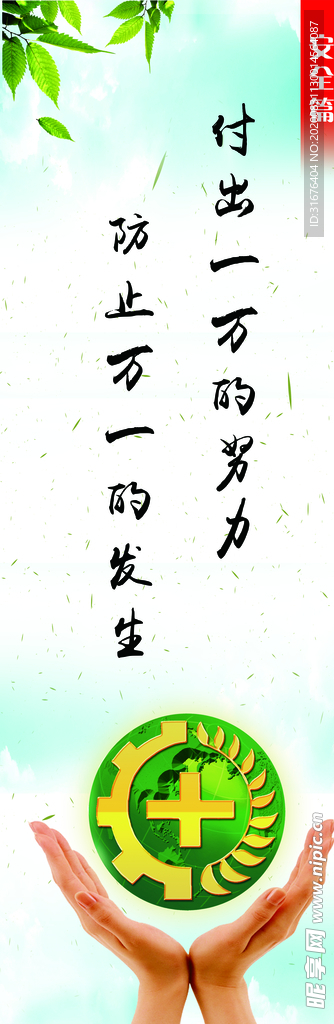 付出一万的努力
防止万一的发生
安全篇
昵享网 www.nipic.cn